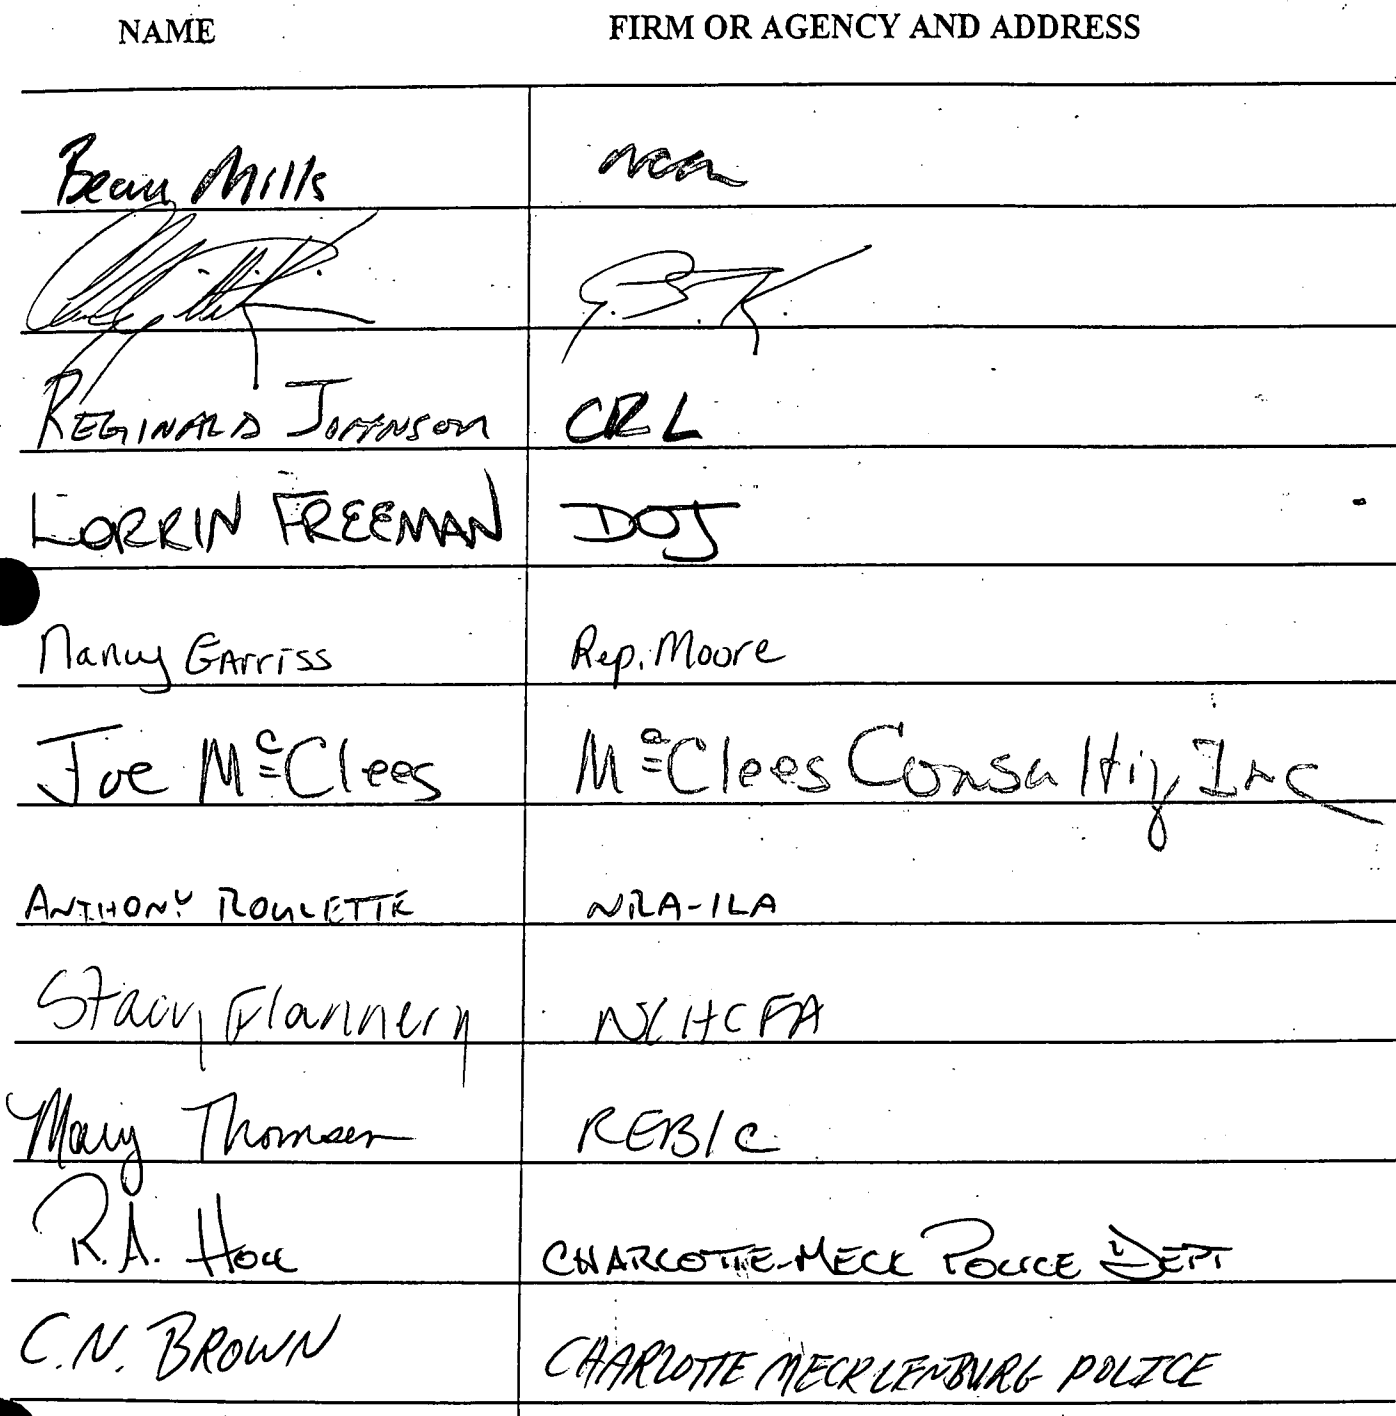 NAME FIRM OR AGENCY AND ADDRESS
Beau Mills
REGINALD JOHNSON CRL
LORRIN FREEMAN DOJ
Nancy GArriss Rep. Moore
Joe McClees McClees Consulting Inc
ANTHONY ROULETTE NRA-ILA
Stacy Flannery NCHCFA
Mary Thomsen REBIC
R.A. CHARLOTTE-MECK POLICE DEPT
C.N. BROWN CHARLOTTE MECKLENBURG POLICE